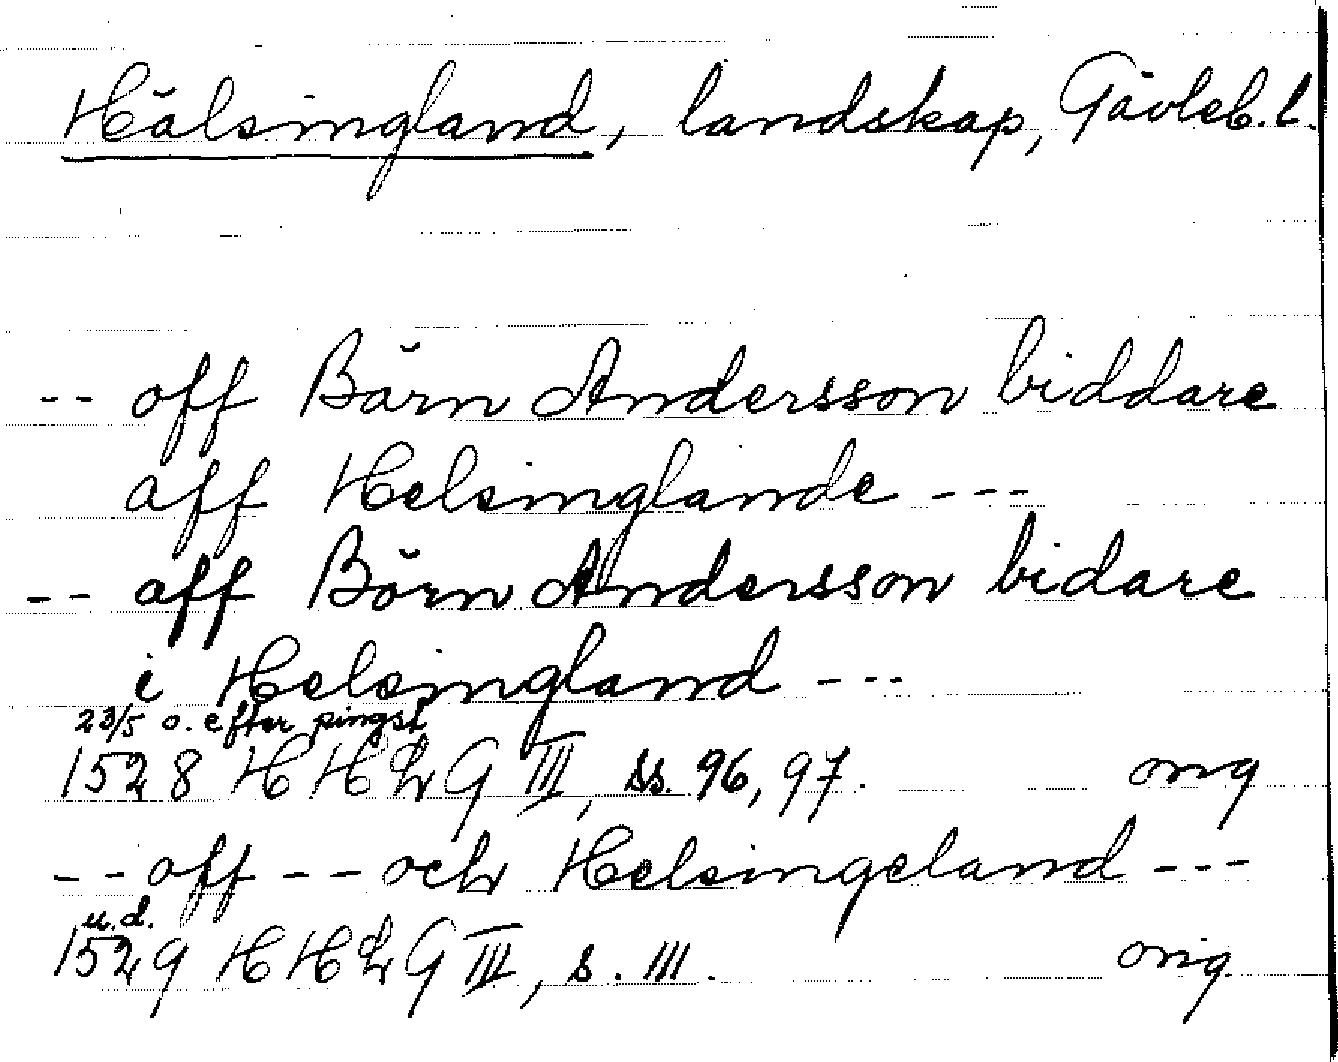 Hälsingland, landskap, Gävleb. l.
-- off Börn Andersson biddare
aff Helsinglande ---
-- aff Börn Andersson bidare
i Helsingland ---
23/5 o. efter pingst
1528 HH Lr G III, ss. 96, 97. orig
-- off -- och Helsingeland ---
u.d.
1529 HH Lr G III, s. 111. orig